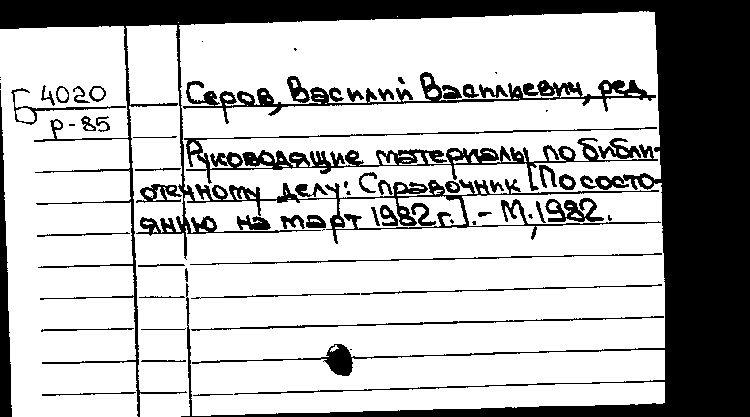 Б 4020
р-85
Серов, Василий Васильевич, ред.
Руководящие материалы по библи-
отечному делу: Справочник [По состо-
янию на март 1982 г.]. - М., 1982.